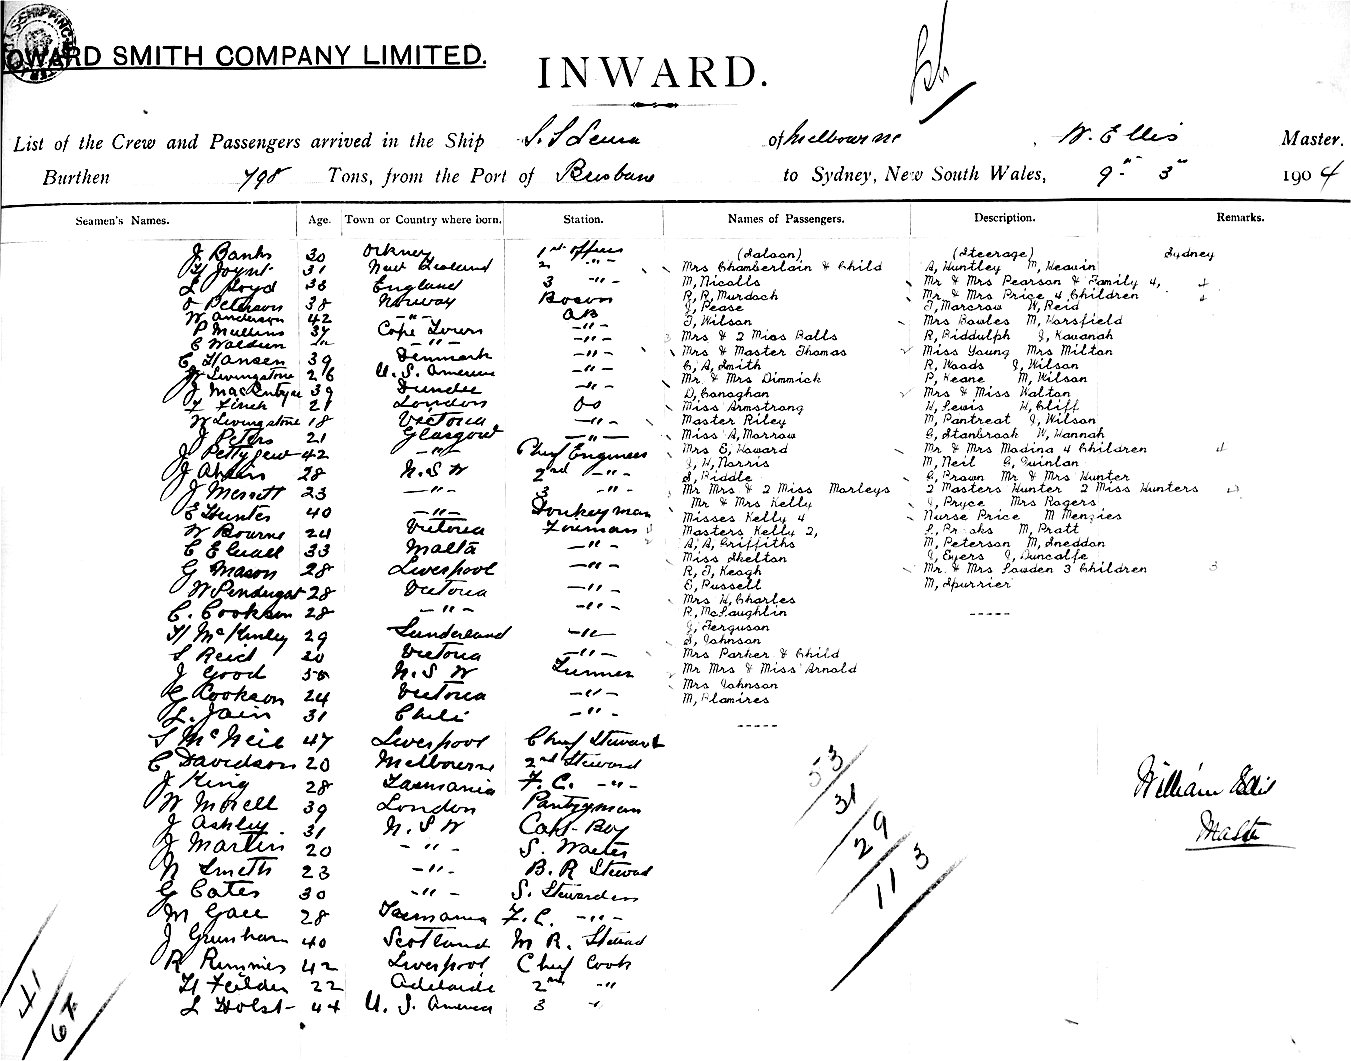 OWARD SMITH COMPANY LIMITED.
INWARD.
List of the Crew and Passengers arrived in the Ship S.S of Melbourne, W. Ellis Master.
Burthen 798 Tons, from the Port of Brisbane to Sydney, New South Wales, 9th 3rd 1904
Seamen's Names. Age. Town or Country where born. Station. Names of Passengers. Description. Remarks.
J Banks 30 Orkney 1st Officer
H Joynt 31 New Zealand 2 -"-
L Lloyd 36 England 3 -"-
O Peterson 38 Norway Bosun
W Anderson 42 -"- AB
P Mullins 37 Cape Town -"-
C -"- -"-
C Hansen 39 Denmark -"-
W Livingstone 26 U. S. America -"-
J MacIntyre 39 Dundee -"-
F Finch 27 London OS
W Livingstone 18 Victoria -"-
J Peters 21 Glasgow -"-
J Pettyjew 42 -"- Chief Engineer
J 28 N.S W 2nd -"-
J Merrett 23 -"- 3 -"-
E Hunter 40 -"- Donkeyman
W Bourne 24 Victoria Fireman
C E 33 Malta -"-
G Mason 28 Liverpool -"-
W Pendugast 28 Victoria -"-
C. Cookson 28 -"- -"-
H McKinley 29 Sunderland -"-
S Reid 20 Victoria -"-
J Good N. S W Trimmer
G Cookson 24 Victoria -"-
L. Jain 31 Chili -"-
S McNeil 47 Liverpool Chief Steward
C Davidson 20 Melbourne 2nd Steward
J King 28 Tasmania F. C. -"-
W Morell 39 London Pantryman
J Ashley 31 N. S W Capt Boy
J Martin 20 -"- S. Waiter
N Smith 23 -"- B. R Steward
G Cates 30 -"- S. Stewardess
M Gall 28 Tasmania F. C. -"-
J 40 Scotland M R. Steward
R Rimmer 42 Liverpool Chief Cook
H Feilder 22 Adelaide 2nd "
L Holst 44 U. S. America 3 "
(Saloon)
Mrs Chamberlain & Child
M, Nicolls
R, R, Murdoch
J, Pease
T, Wilson
Mrs & 2 Miss Balls
Mrs & Master Thomas
C, A, Smith
Mr & Mrs Dimmick
D, Conaghan
Miss Armstrong
Master Riley
Miss A, Morrow
Mrs E, Howard
J, H, Norris
S, Biddle
Mr Mrs & 2 Miss Morleys
Mr & Mrs Kelly
Misses Kelly 4
Masters Kelly 2,
A, A, Griffiths
Miss Skelton
R, J, Keogh
E, Russell
Mrs H, Charles
R, McLaughlin
J, Ferguson
S, Johnson
Mrs Parker & Child
Mr Mrs & Miss Arnold
Mrs Johnson
M, Blamires
-----
(Steerage) Sydney
A, Huntley M, Heavin
Mr & Mrs Pearson & Family 4, 4
Mr & Mrs Price 4 Children 4
T, Marcrow W, Reid
Mrs Bowles M, Horsfield
R, Biddulph J, Kavanah
Miss Young Mrs Milton
R, Woods J, Wilson
P, Keane M, Wilson
Mrs & Miss Walton
H, Lewis H, Cliff
M, Pantreat J, Wilson
G, Stanbrook W, Hannah
Mr & Mrs Madina 4 Children 4
M, Neil G, Quinlan
G, Brown Mr & Mrs Hunter
2 Masters Hunter 2 Miss Hunters
J, Pryce Mrs Rogers
Nurse Price M Menzies
M, Pratt
M, Peterson M, Sneddon
J, Eyers J, Duncalfe
Mr & Mrs Lowden 3 Children 3
M, Spurrier
-----
53
31
29
113
William Ellis
Master
41
67